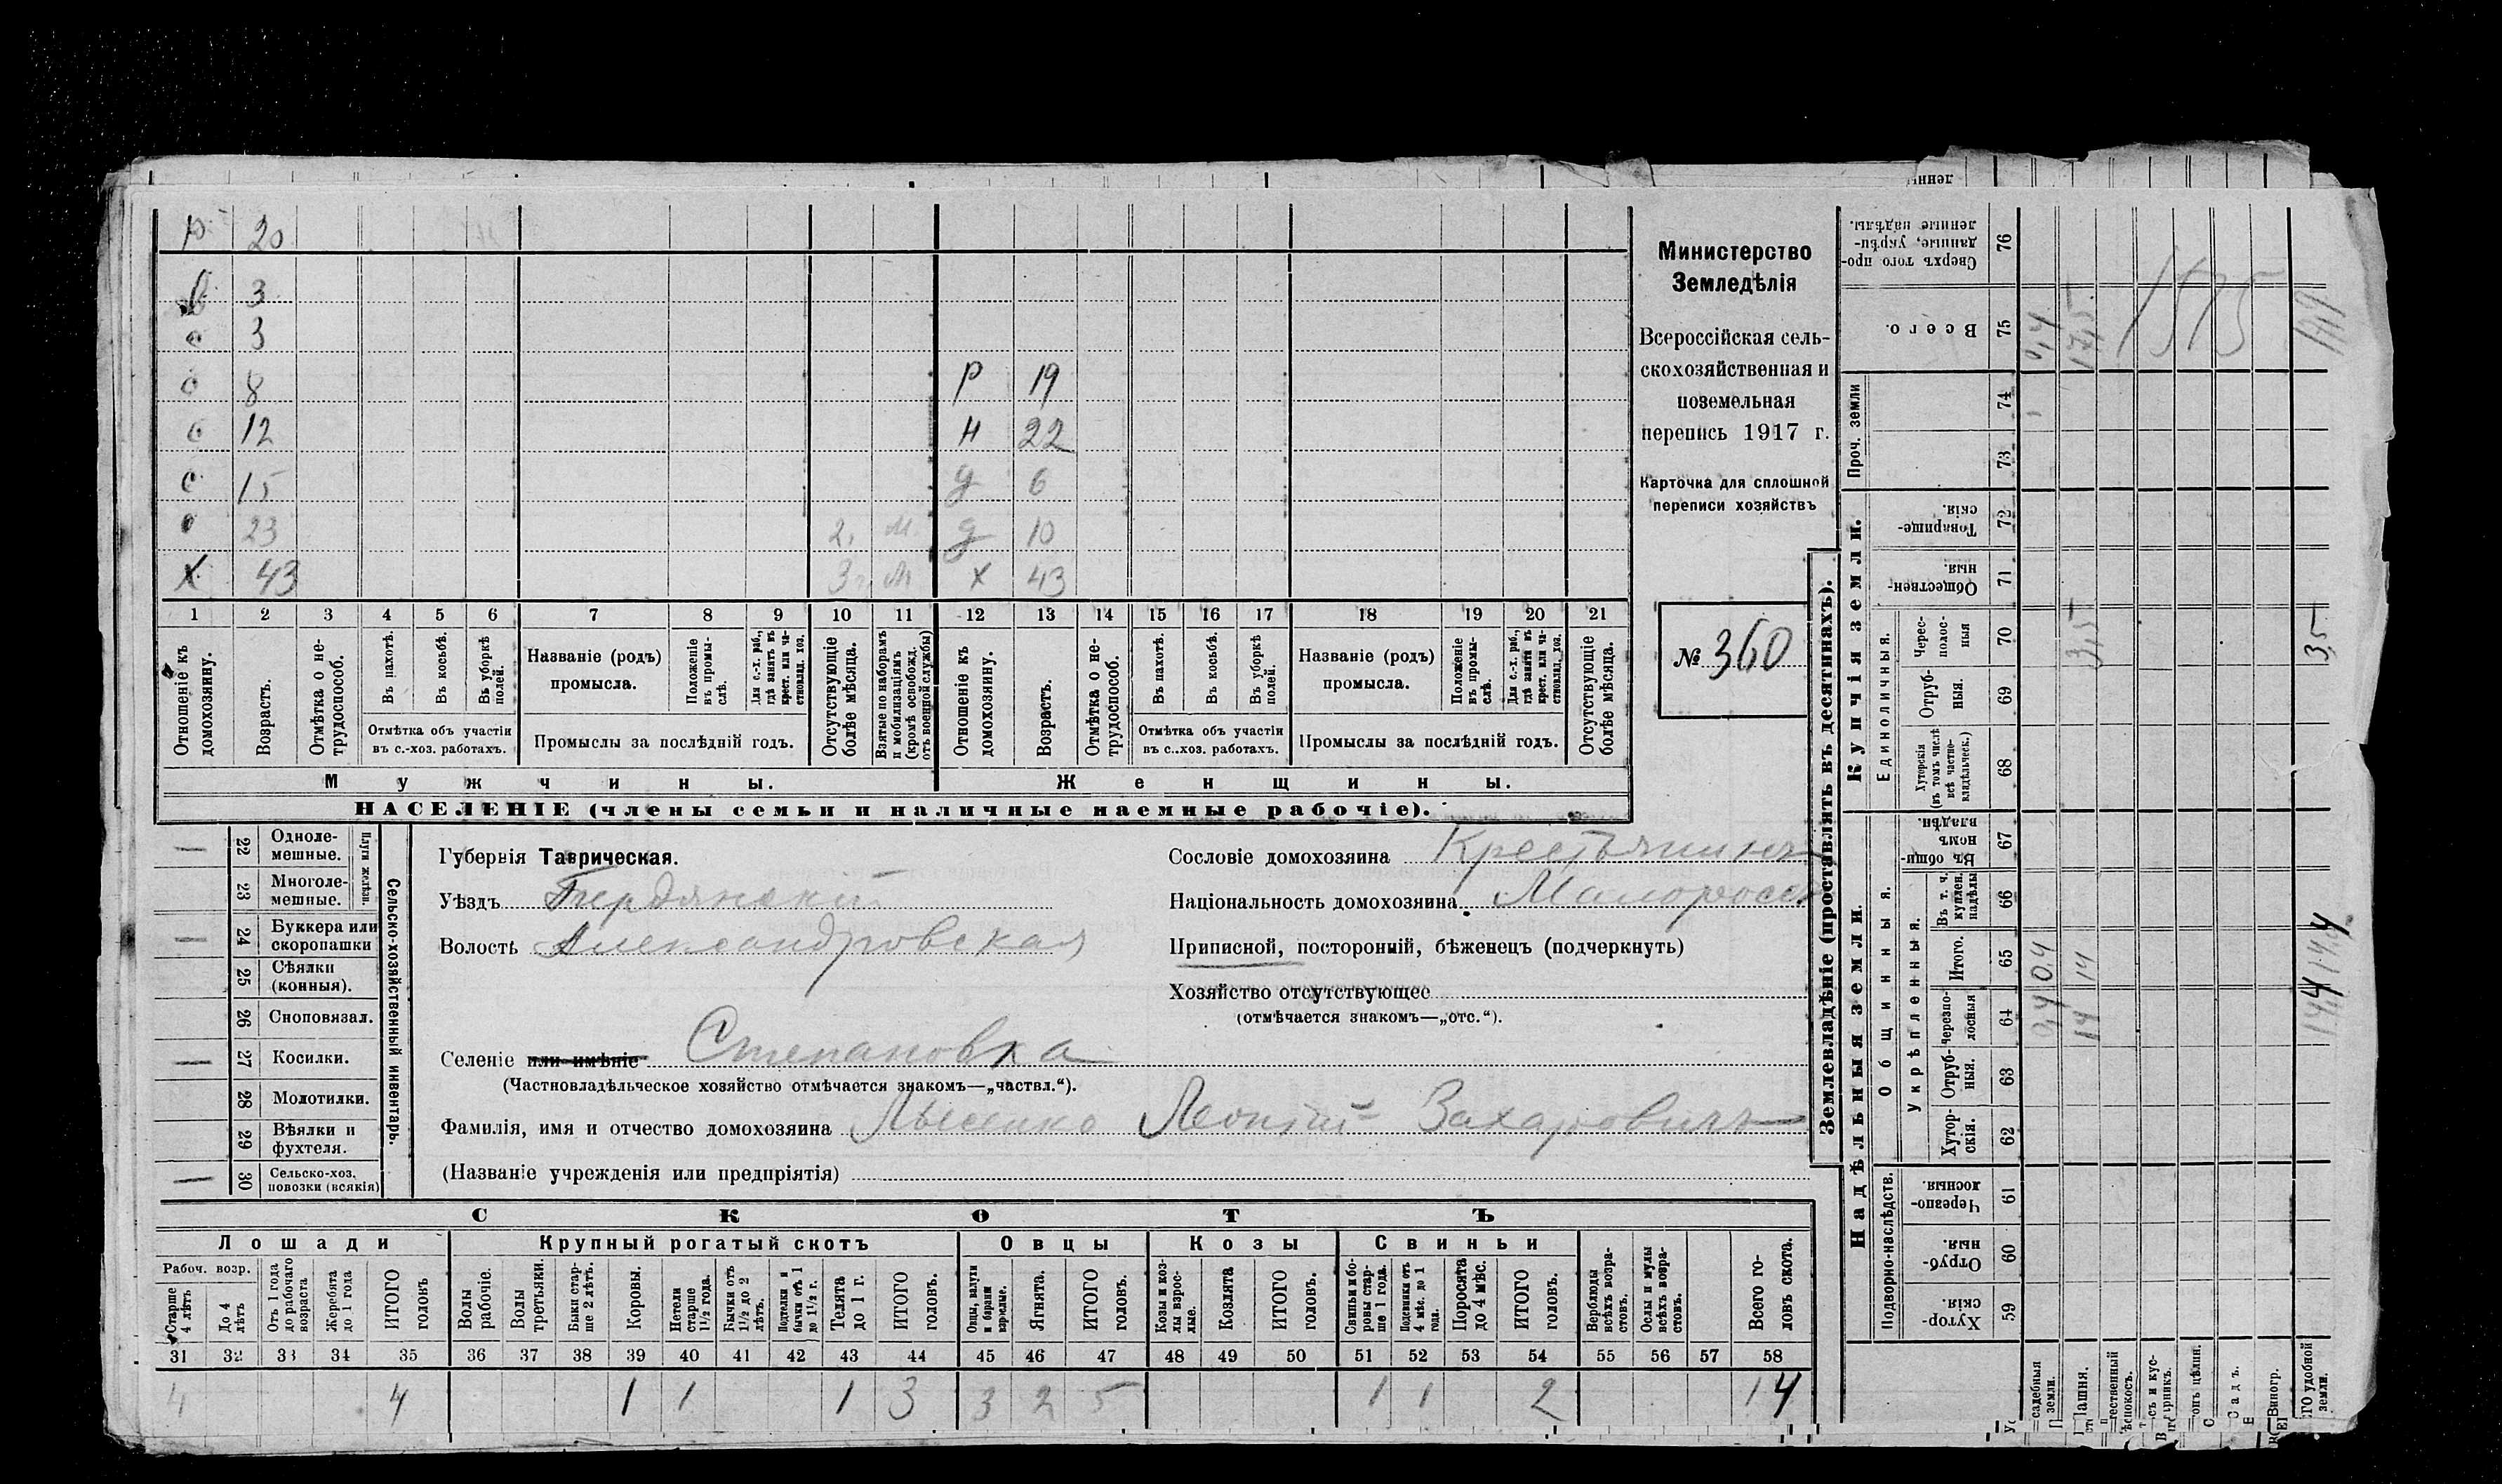 р 20
в 3
с 3
с 8 р 19
с 12 н 22
с 15 д 6
с 23 2 м. д 10
х 43 3 г. м х 43
1 2 3 4 5 6 7 8 9 10 11 12 13 14 15 16 17 18 19 20 21
Отношеніе къ домохозяину.
Возрастъ.
Отмѣтка о не-трудоспособ.
Въ пахотѣ.
Въ косьбѣ.
Въ уборкѣ полей.
Отмѣтка объ участіи въ с.-хоз. работахъ.
Названіе (родъ) промысла.
Положеніе въ промы-слѣ.
Для с.-х. раб., гдѣ занятъ въ крест. или ча-стновлад. хоз.
Промыслы за послѣдній годъ.
Отсутствующіе болѣе мѣсяца.
Взятые по наборамъ и мобилизаціямъ (кромѣ освобожд. отъ военной службы)
Отношеніе къ домохозяину.
Возрастъ.
Отмѣтка о не-трудоспособ.
Въ пахотѣ.
Въ косьбѣ.
Въ уборкѣ полей.
Отмѣтка объ участіи въ с.-хоз. работахъ.
Названіе (родъ) промысла.
Положеніе въ промы-слѣ.
Для с.-х. раб., гдѣ занята въ крест. или ча-стновлад. хоз.
Промыслы за послѣдній годъ.
Отсутствующіе болѣе мѣсяца.
Мужчины. Женщины.
НАСЕЛЕНІЕ (члены семьи и наличные наемные рабочіе).
Министерство
Земледѣлія
Всероссійская сель-
скохозяйственная и
поземельная
перепись 1917 г.
Карточка для сплошной
переписи хозяйствъ
№ 360
22 Одноле-мешные.
23 Многоле-мешные.
Плуги желѣзн.
24 Буккера или скоропашки
25 Сѣялки (конныя).
26 Сноповязал.
27 Косилки.
28 Молотилки.
29 Вѣялки и фухтеля.
30 Сельско-хоз. повозки (всякія)
Сельско-хозяйственный инвентарь.
Губернія Таврическая.
Уѣздъ Бердянскій
Волость Александровская
Селеніе или имѣніе Степановка
(Частновладѣльческое хозяйство отмѣчается знакомъ—„частвл.“).
Фамилія, имя и отчество домохозяина Лысенко Леонтій Захаровичъ
(Названіе учрежденія или предпріятія)
Сословіе домохозяина Крестьянинъ
Національность домохозяина Малоросс
Приписной, посторонній, бѣженецъ (подчеркнуть)
Хозяйство отсутствующее
(отмѣчается знакомъ—„отс.“).
СКОТЪ
Лошади Крупный рогатый скотъ Овцы Козы Свиньи
Рабоч. возр.
Старше 4 лѣтъ
До 4 лѣтъ
Отъ 1 года до рабочаго возраста
Жеребята до 1 года
ИТОГО головъ
Волы рабочіе.
Волы третьяки.
Быки стар-ше 2 лѣтъ.
Коровы.
Нетели старше 1½ года.
Бычки отъ 1½ до 2 лѣтъ.
Подтелки и бычки отъ 1 до 1½ г.
Телята до 1 г.
ИТОГО головъ.
Овцы, валухи и бараны взрослые.
Ягнята.
ИТОГО головъ.
Козы и коз-лы взрос-лые.
Козлята
ИТОГО головъ.
Свиньи и бо-ровы стар-ше 1 года.
Подсвинки отъ 4 мѣс. до 1 года.
Поросята до 4 мѣс.
ИТОГО головъ.
Верблюды всѣхъ возра-стовъ.
Ослы и мулы всѣхъ возра-стовъ.
Всего го-ловъ скота.
31 32 33 34 35 36 37 38 39 40 41 42 43 44 45 46 47 48 49 50 51 52 53 54 55 56 57 58
4 4 1 1 1 3 3 2 5 1 1 2 14
Землевладѣніе (проставлять въ десятинахъ).
Сверхъ того про-данные, укрѣп-ленные надѣлы. 76
Всего. 75 0,4 17,5
Проч. земли
74
73
Купчія земли.
Товарище-скія. 72
Обществен-ныя. 71
Единоличныя.
Черес-полос-ныя 70 3,5 3,5
Отруб-ныя. 69
Хуторскія (въ томъ числѣ всѣ частно-владѣльческ.) 68
Надѣльныя земли.
Общинныя.
Въ общи-номъ владѣн. 67
Укрѣпленныя.
Въ т. ч. куплен. надѣлы 66
Итого. 65 0,4 14 14,4
Черезпо-лосныя 64 0,4 14 14,4
Отруб-ныя. 63
Хутор-скія. 62
Подворно-наслѣдств.
Черезпо-лосныя 61
Отруб-ныя 60
Хутор-скія. 59
садебныя земли.
Пашня.
Садъ.
Виногр.
удобной земли.